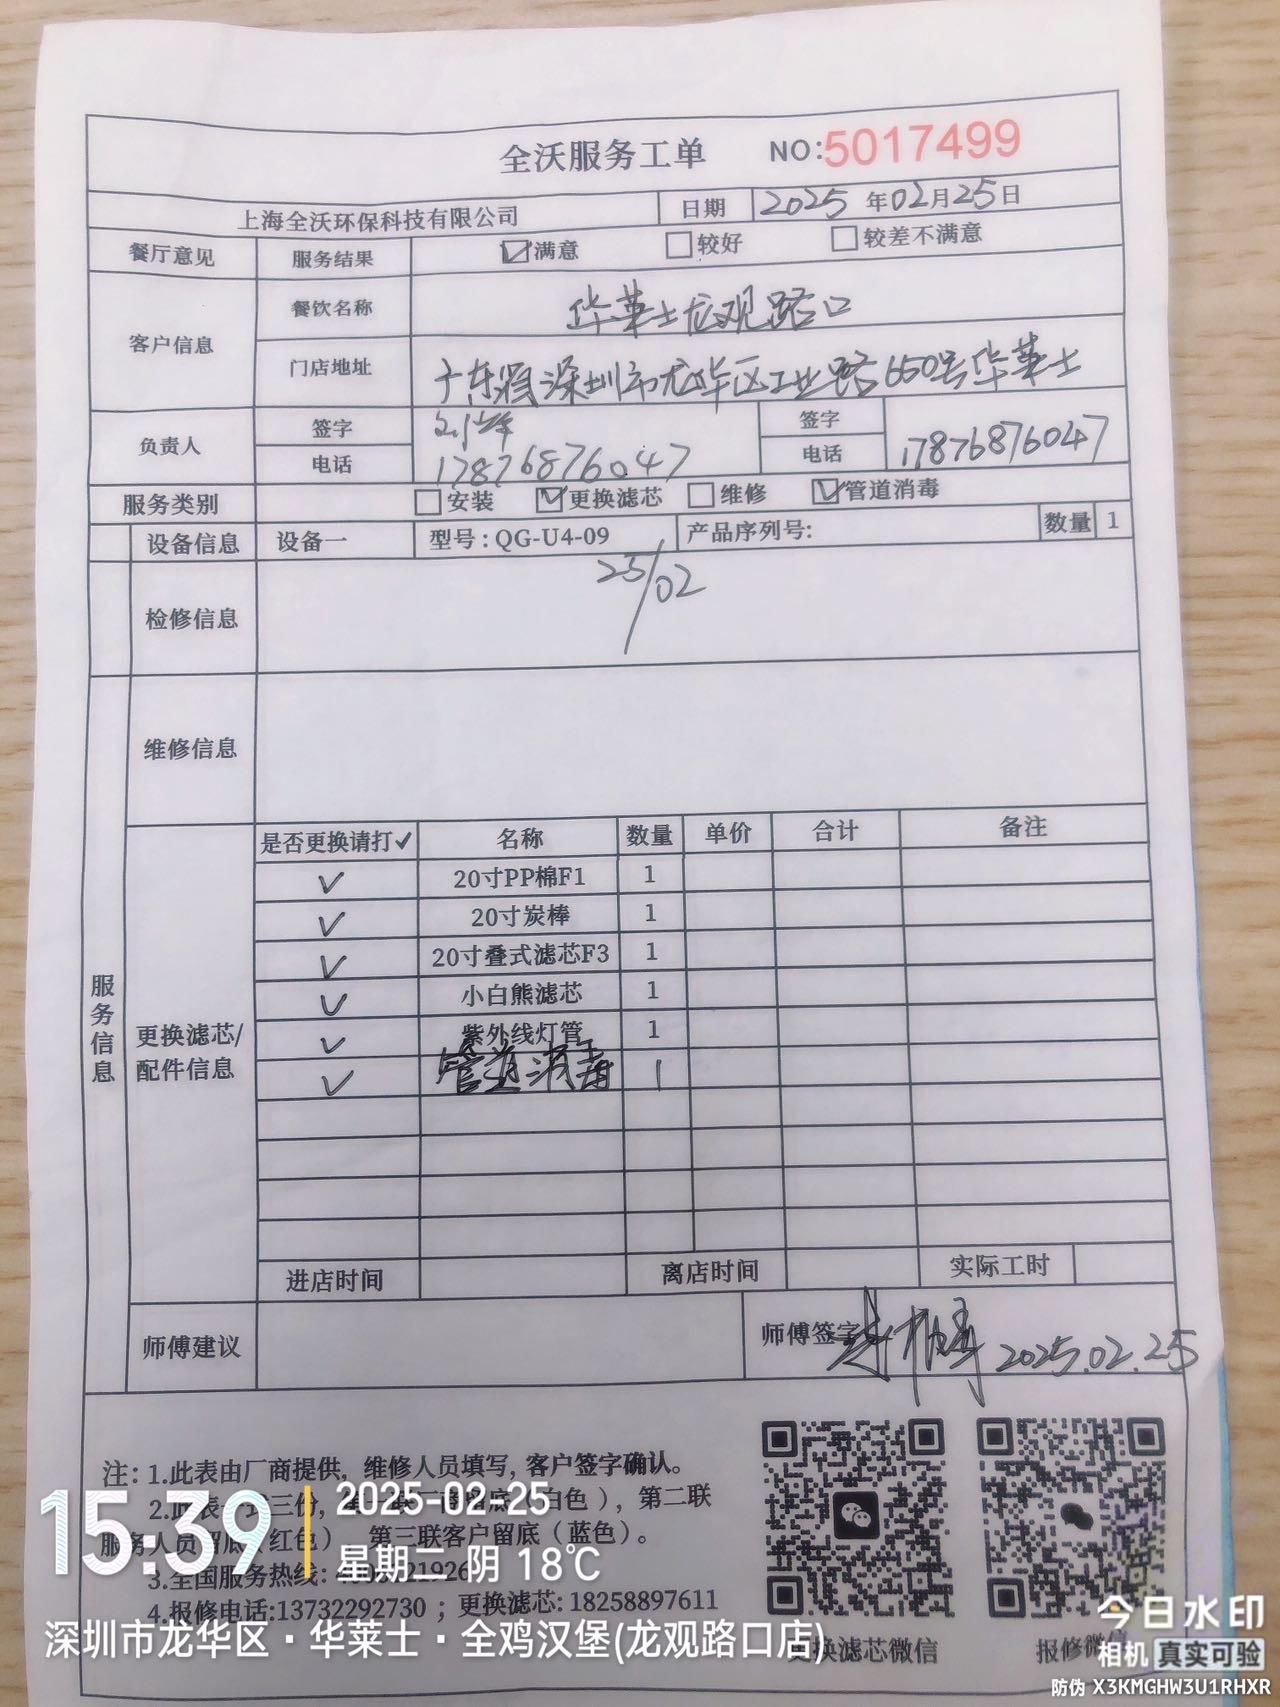 全沃服务工单 NO:5017499
上海全沃环保科技有限公司 日期 2025年02月25日
餐厅意见 服务结果 ☑满意 □较好 □较差不满意
客户信息 餐饮名称 华莱士龙观路口
门店地址 广东省深圳市龙华区工业路650号华莱士
负责人 签字 签字
电话 17876876047 电话 17876876047
服务类别 □安装 ☑更换滤芯 □维修 ☑管道消毒
设备信息 设备一 型号:QG-U4-09 产品序列号: 数量 1
检修信息 25/02
维修信息
服务信息
更换滤芯/配件信息
是否更换请打✓ 名称 数量 单价 合计 备注
✓ 20寸PP棉F1 1
✓ 20寸炭棒 1
✓ 20寸叠式滤芯F3 1
✓ 小白熊滤芯 1
✓ 紫外线灯管 1
✓ 管道消毒 1
进店时间 离店时间 实际工时
师傅建议 师傅签字 2025.02.25
注: 1.此表由厂商提供, 维修人员填写, 客户签字确认。
2.此表一式三份, 第一联厂商留底(白色), 第二联
服务人员留底(红色) 第三联客户留底(蓝色)。
3.全国服务热线:
4.报修电话:13732292730 ; 更换滤芯: 18258897611
更换滤芯微信 报修微信
15:39 2025-02-25
星期二 阴 18℃
深圳市龙华区·华莱士·全鸡汉堡(龙观路口店)
今日水印
相机 真实可验
防伪 X3KMGHW3U1RHXR